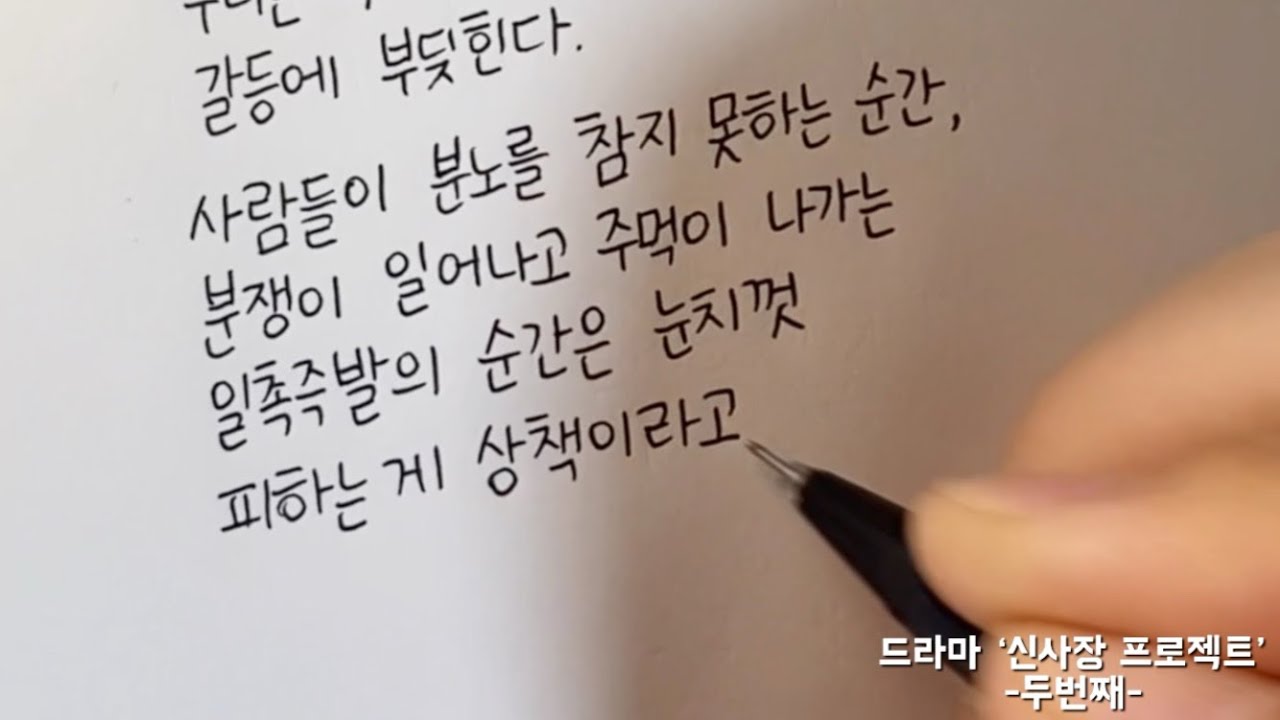 갈등에 부딪힌다.
사람들이 분노를 참지 못하는 순간,
분쟁이 일어나고 주먹이 나가는
일촉즉발의 순간은 눈치껏
피하는 게 상책이라고
드라마 ‘신사장 프로젝트’
-두번째-